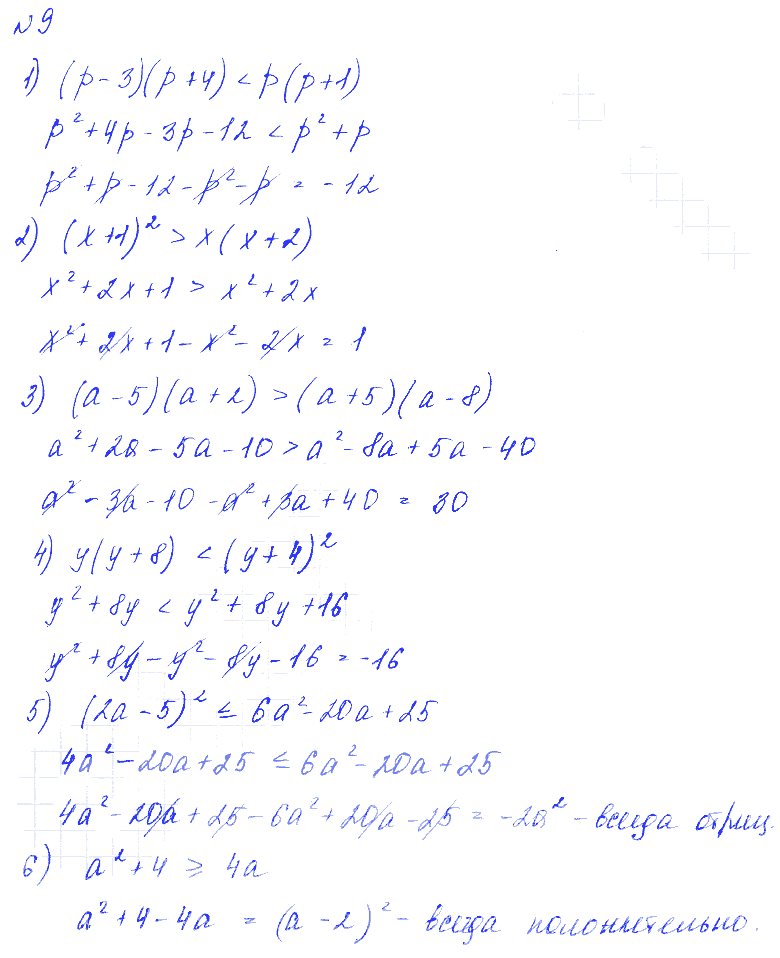 №9
1) (p-3)(p+4) < p(p+1)
p²+4p-3p-12 < p²+p
p²+p-12-p²-p = -12
2) (x+1)² > x(x+2)
x²+2x+1 > x²+2x
x²+2x+1-x²-2x = 1
3) (a-5)(a+2) > (a+5)(a-8)
a²+2a-5a-10 > a²-8a+5a-40
a²-3a-10-a²+3a+40 = 30
4) y(y+8) < (y+4)²
y²+8y < y²+8y+16
y²+8y-y²-8y-16 = -16
5) (2a-5)² ≤ 6a²-20a+25
4a²-20a+25 ≤ 6a²-20a+25
4a²-20a+25-6a²+20a-25 = -2a² - всегда отриц.
6) a²+4 ≥ 4a
a²+4-4a = (a-2)² - всегда положительно.